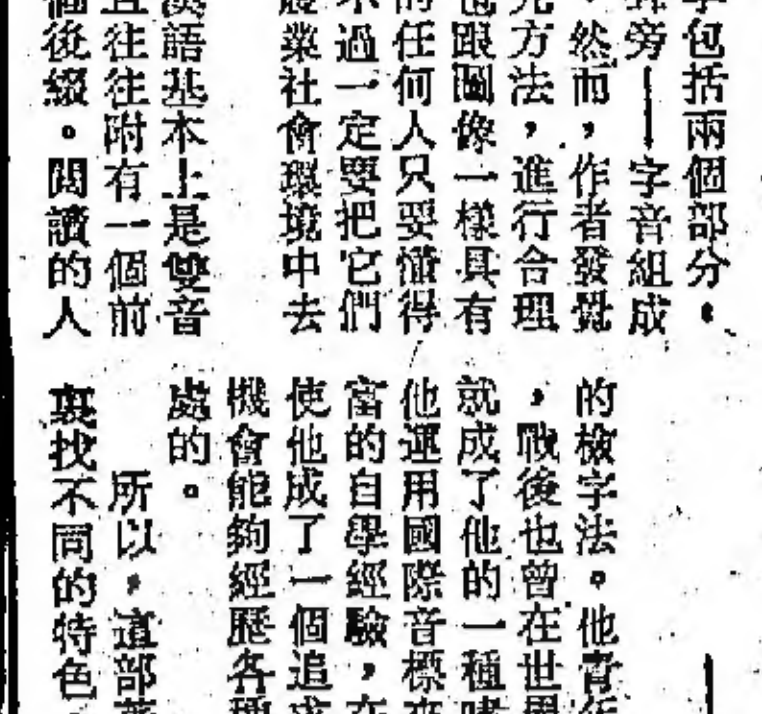 字包括兩個部分。
旁——字音組成
，然而，作者發覺
方法，進行合理
也跟圖像一樣具有
的任何人只要懂得
不過一定要把它們
農業社會環境中去
漢語基本上是雙音
且往往附有一個前
個後綴。閱讀的人
的檢字法。他青年
，戰後也曾在世界
就成了他的一種嗜
他運用國際音標來
富的自學經驗，在
使他成了一個追求
機會能夠經歷各種
處的。
所以，這部著
裏找不同的特色。